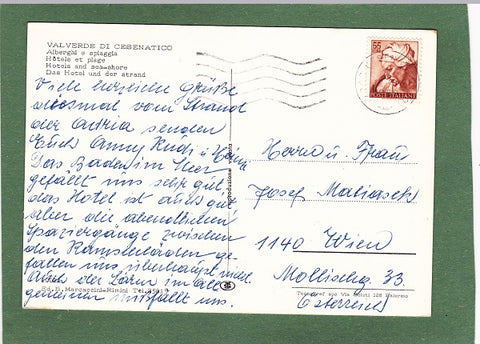 VALVERDE DI CESENATICO
Alberghi e spiaggia
Hôtels et plage
Hotels and sea-shore
Das Hotel und der strand
Viele herzliche Grüße
diesmal vom Strand
der Adria senden
Euch Anny Rudi u.
Das Baden im Meer
gefällt uns sehr gut,
das Hotel ist auch gut
aber die abendlichen
Spaziergänge zwischen
den Ramschläden ge-
fallen uns überhaupt nicht.
Auch der Lärm im all-
gemeinen missfällt uns.
55
POSTE ITALIANE
Herrn u. Frau
Josef Matiasek
1140 Wien
Mollischg. 33
Österreich
Ed. B. Marcaccini-Rimini Tel.